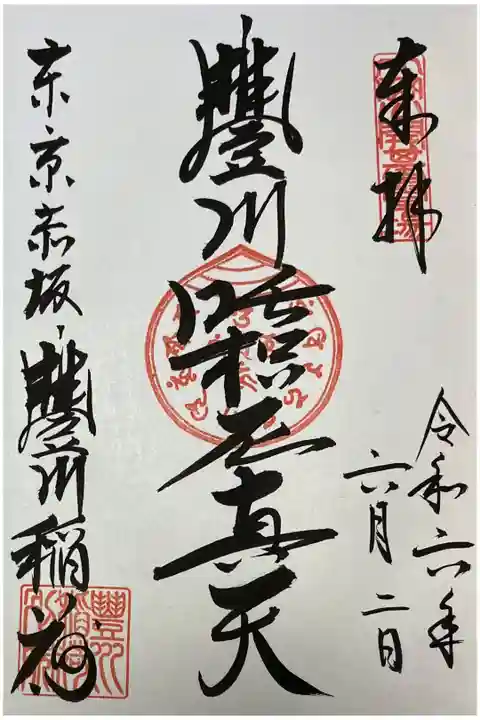 奉拝
令和六年
六月二日
豐川吒枳尼真天
東京赤坂
豐川稲荷